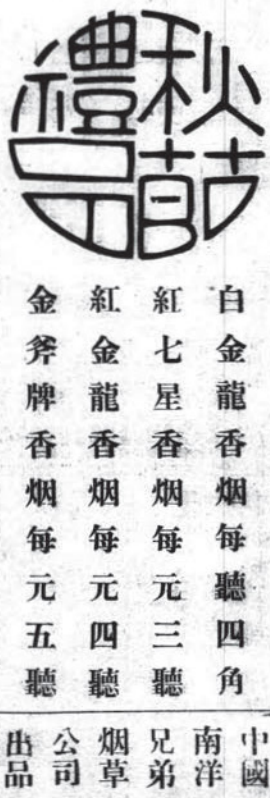 秋節
禮品
白金龍香烟每聽四角
紅七星香烟每元三聽
紅金龍香烟每元四聽
金斧牌香烟每元五聽
中國
南洋
兄弟
烟草
公司
出品